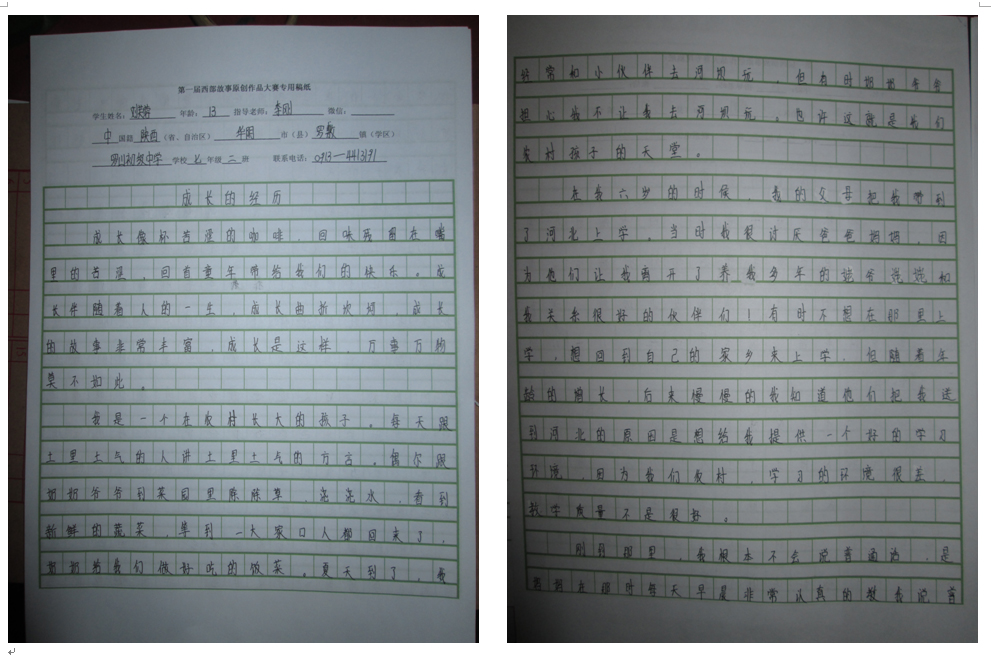 第一届西部故事原创作品大赛专用稿纸
学生姓名： 年龄：13 指导老师：李刚 微信：
中国籍 陕西（省、自治区） 华阴 市（县） 罗敷 镇（学区）
罗川初级中学 学校 七 年级 二 班 联系电话：0913—4413191
成长的经历
成长像杯苦涩的咖啡，回味残留在嘴
里的苦涩，回首童年带给我们的快乐。成
长伴随着人的一生，成长曲折坎坷，成长
的故事非常丰富，成长是这样，万事万物
莫不如此。
我是一个在农村长大的孩子。每天跟
土里土气的人讲土里土气的方言。偶尔跟
奶奶爷爷到菜园里除除草，浇浇水，看到
新鲜的蔬菜，等到一大家口人都回来了，
奶奶给我们做好吃的饭菜。夏天到了，我
经常和小伙伴去河坝玩，但有时奶奶爷爷
担心我不让我去河坝玩。也许这就是我们
农村孩子的天堂。
在我六岁的时候，我的父母把我带到
了河北上学。当时我很讨厌爸爸妈妈，因
为他们让我离开了养我多年的爷爷奶奶和
我关系很好的伙伴们！有时不想在那里上
学，想回到自己的家乡来上学，但随着年
龄的增长，后来慢慢的我知道他们把我送
到河北的原因是想给我提供一个好的学习
环境，因为我们农村，学习的环境很差，
教学质量不是很好。
刚到那里，我根本不会说普通话，是
老师在那时每天早晨非常认真的教我说普